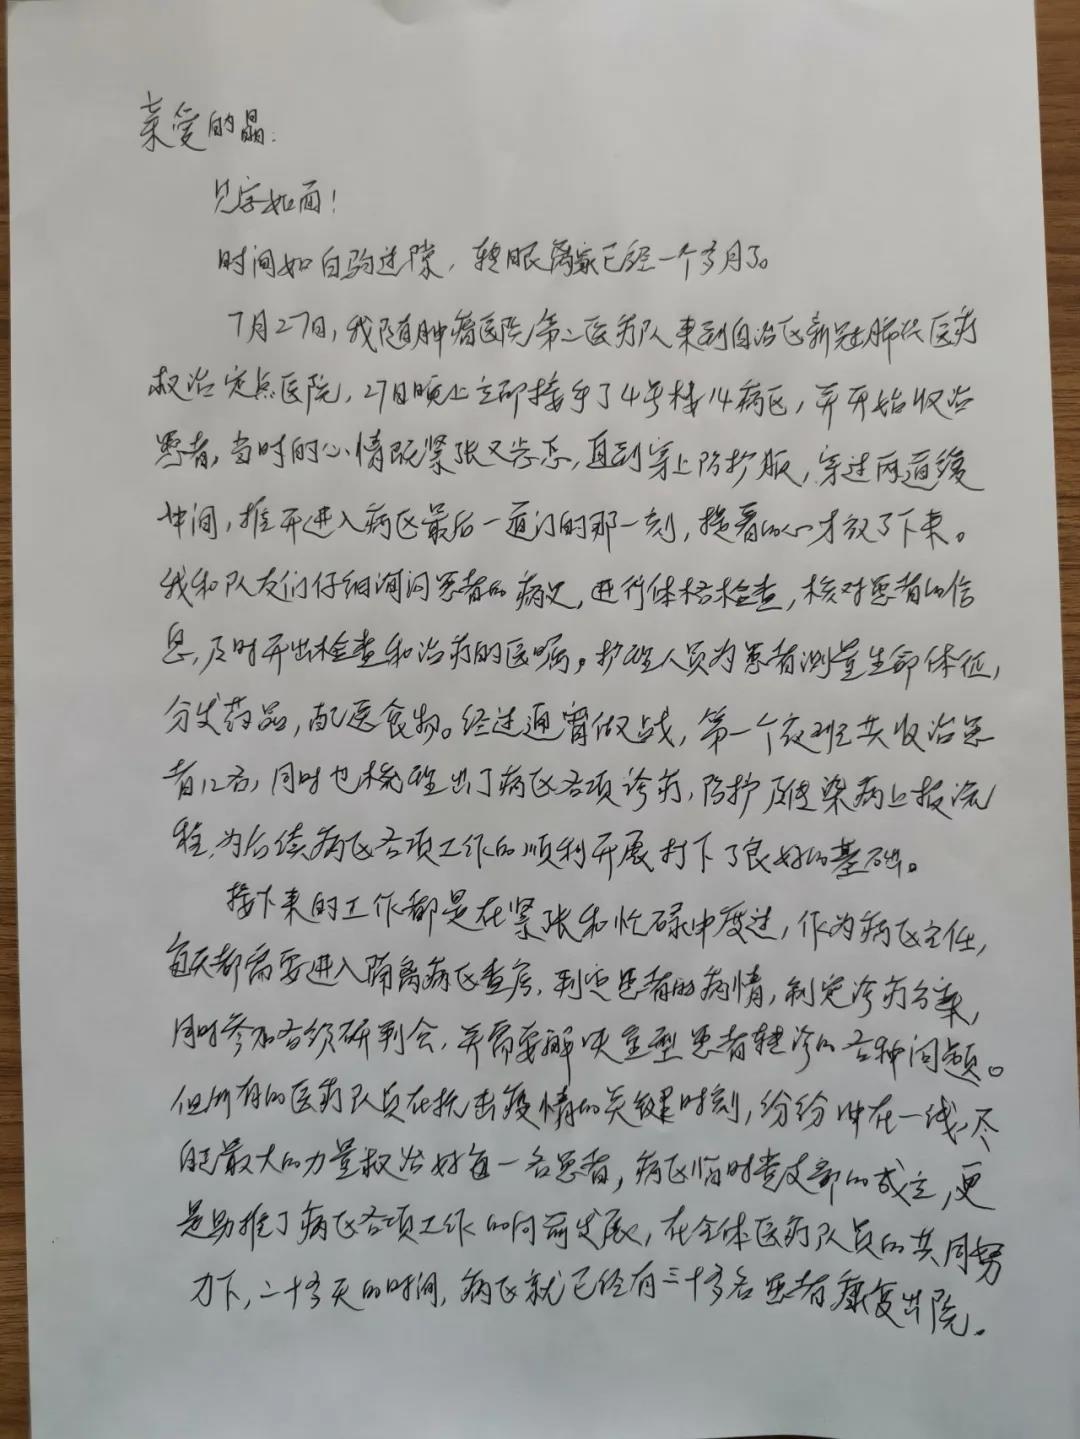 亲爱的晶:
见字如面!
时间如白驹过隙,转眼离家已经一个多月了。
7月27日,我随肿瘤医院第二医疗队来到自治区新冠肺炎医疗
救治定点医院,27日晚上立即接手了4号楼14病区,并开始收治
患者,当时的心情既紧张又忐忑,直到穿上防护服,穿过两道缓
冲间,推开进入病区最后一道门的那一刻,提着的心才放了下来。
我和队友们仔细询问患者的病史,进行体格检查,核对患者的信
息,及时开出检查和治疗的医嘱。护理人员为患者测量生命体征,
分发药品,配送食物。经过通宵做战,第一个夜班共收治患
者12名,同时也梳理出了病区各项诊疗,防护及传染病上报流
程,为后续病区各项工作的顺利开展打下了良好的基础。
接下来的工作都是在紧张和忙碌中度过,作为病区主任,
每天都需要进入隔离病区查房,判定患者的病情,制定诊疗方案,
同时参加各级研判会,并需要解决重型患者转诊的各种问题。
但所有的医疗队员在抗击疫情的关键时刻,纷纷冲在一线,尽
自己最大的力量救治好每一名患者,病区临时党支部的成立,更
是助推了病区各项工作的向前发展,在全体医疗队员的共同努
力下,二十多天的时间,病区就已经有三十多名患者康复出院。